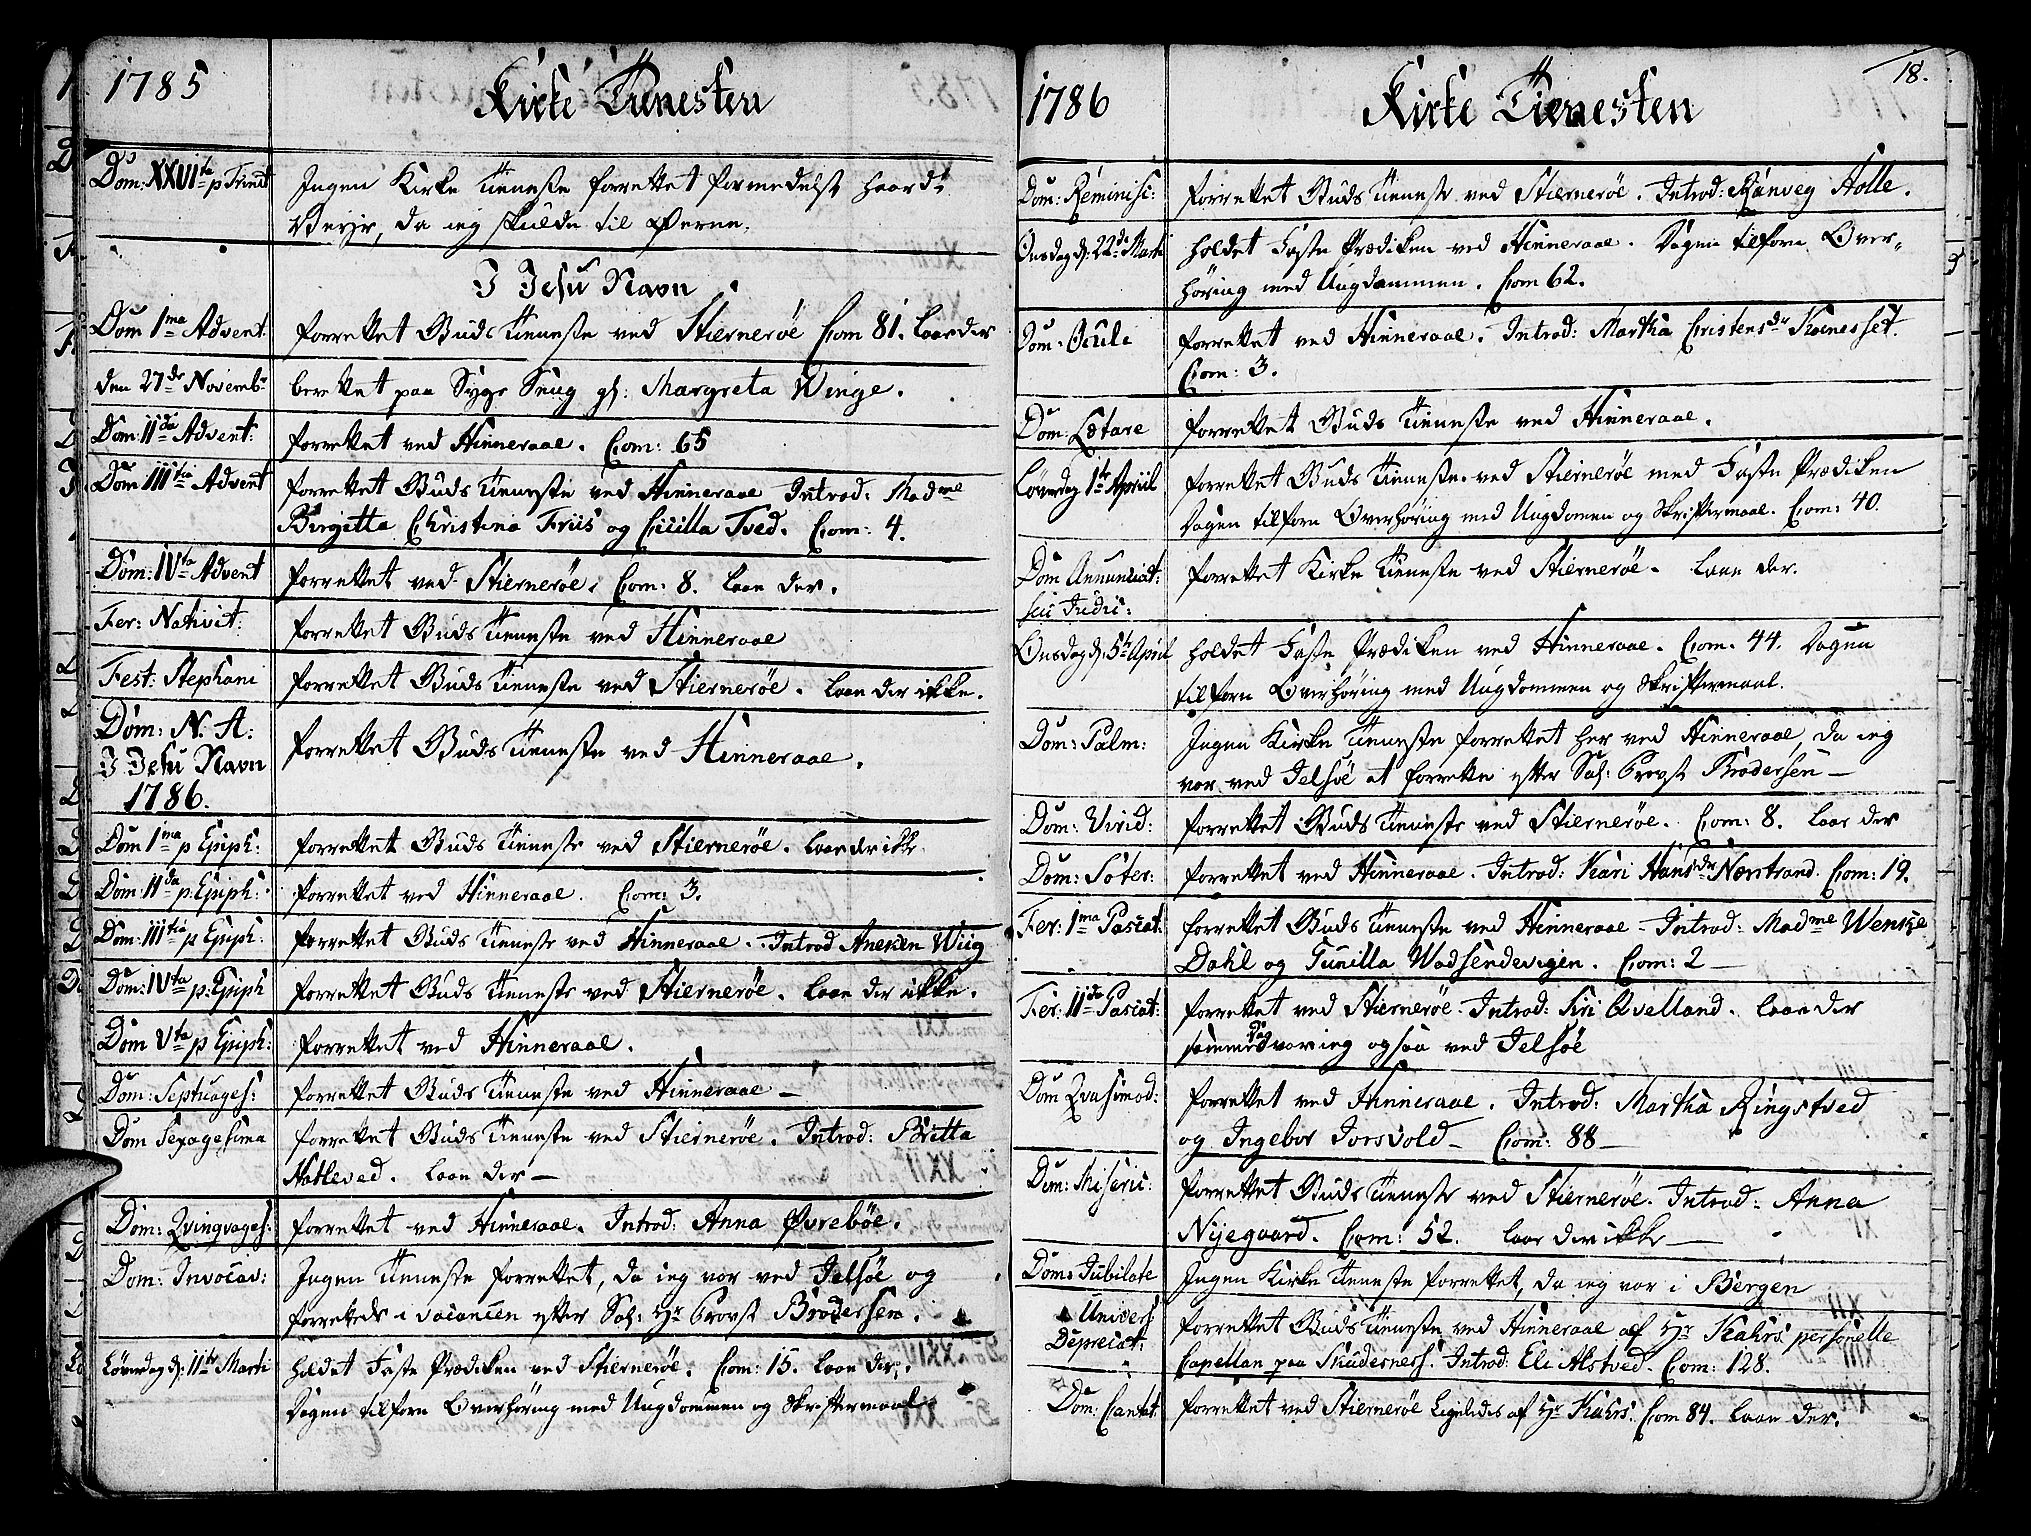 1785 Kirke Tienesten
Dom: XXVIta p Trinit Ingen Kirke Tieneste forrettet formedelst haard
Veyr, da ieg skulde til Øerne.
I Jesu Navn
Dom 1ma Advent. forrettet Guds Tieneste ved Stiernerøe Com 81. laae der
den 27de Novemb: berettet paa Syge Seng gl: Margreta Winge.
Dom: IIda Advent: forrettet ved Hinneraae. Com: 65
Dom IIItia Advent forrettet Guds Tieneste ved Hinneraae Introd: Madme
Birgitta Christina Friis og Cicilla Tved. Com: 4.
Dom: IVta Advent forrettet ved Stiernerøe. Com: 8. laae der.
Fer: Nativit: forrettet Guds Tieneste ved Hinneraae
Fest: Stephani forrettet Guds Tieneste ved Stiernerøe. laae der ikke.
Dom: N. A: forrettet Guds Tieneste ved Hinneraae.
I Jesu Navn
1786.
Dom 1ma p Epiph: forrettet Guds Tieneste ved Stiernerøe. laae der ikke
Dom IIda p. Epiph: forrettet ved Hinneraae. Com: 3.
Dom: IIItia p Epiph: forrettet Guds Tieneste ved Hinneraae. Introd Aneken Wiig
Dom: IVta p: Epiph forrettet Guds Tieneste ved Stiernerøe. laae der ikke.
Dom Vta p Epiph: forrettet ved Hinneraae.
Dom: Septuages: forrettet Guds Tieneste ved Hinneraae —
Dom Sexagesima forrettet Guds Tieneste ved Stiernerøe. Introd: Britta
Hatleved. laae der —
Dom: Qvingvages: forrettet ved Hinneraae. Introd: Anna Øvrebøe.
Dom: Invocav: Ingen Tieneste forrettet, da ieg var ved Jelsøe og
forrettede i vacancen efter Sal: Hr Provst Brodersen.
Løverdag d: 11te Marti holdet Faste Prædiken ved Stiernerøe. Com: 15. laae der.
Dagen tilforn Overhøring med Ungdommen og Skriftemaal
1786 Kirke Tienesten 18.
Dom: Reminisc: forrettet Guds Tieneste ved Stiernerøe. Introd: Ranveg Holle.
Onsdag d: 22de Marti holdet Faste Prædiken ved Hinneraae. Dagen tilforn Over-
høring med Ungdommen. Com 62.
Dom: Oculi forrettet ved Hinneraae. Introd: Martha Christensdr
Com: 3.
Dom: Lætare forrettet Guds Tieneste ved Hinneraae.
Løverdag 1te Apriil forrettet Guds Tieneste ved Stiernerøe med Faste Prædiken
Dagen tilforn Overhøring med Ungdomen og Skriftemaal. Com: 40.
Dom Annunciat: forrettet Kirke Tieneste ved Stiernerøe. laae der.
seu Judic:
Onsdag d: 5te April holdet Faste Prædiken ved Hinneraae. Com. 44. Dagen
tilforn Overhøring med Ungdommen og Skriftemaal.
Dom: Palm: Ingen Kirke Tieneste forrettet her ved Hinneraae, da ieg
var ved Jelsøe at forrette efter Sal: Provst Brodersen —
Dom: Virid: forrettet Guds Tieneste ved Stiernerøe. Com: 8. laae der
Dom: Soter: forrettet ved Hinneraae. Introd: Kari Hansdr Nærstrand. Com: 19.
Fer: 1ma Pascat: forrettet Guds Tieneste ved Hinneraae — Introd: Madme Wenke
Dahl og Gunilla Wadsendevigen. Com: 2 —
Fer: IIda Pascat: forrettet ved Stiernerøe. Introd: Siri Qvelland. laae der
samme Dag var ieg ogsaa ved Jelsøe
Dom Qvasimod: forrettet ved Hinneraae. Introd: Martha Ringstved
og Ingebor Jorsvold — Com: 88 —
Dom: Miseric: forrettet Guds Tieneste ved Stiernerøe. Introd: Anna
Nijegaard. Com: 52. laae der ikke —
Dom: Jubilate Ingen Kirke Tieneste forrettet, da ieg var i Bergen
Univers forrettet Guds Tieneste ved Hinneraae af Hr Kahrs personelle
Depreciat: Capellan paa Skudesness. Introd: Eli Alstved. Com: 128.
Dom: Cantat: forrettet ved Stiernerøe Ligeledes af Hr Kahrs. Com 84. laae der.